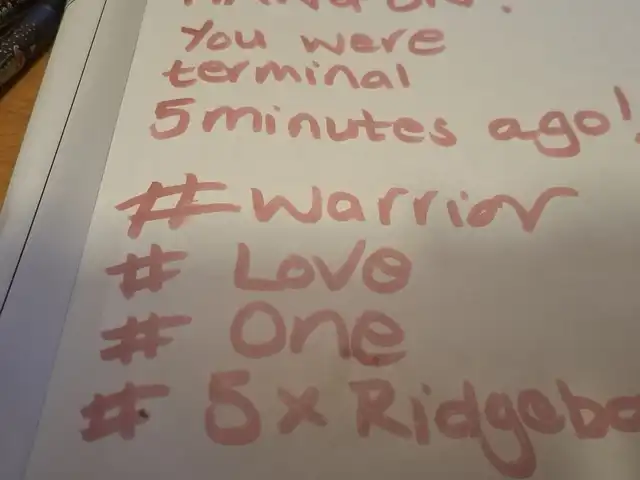 You were
terminal
5 minutes ago!
# Warrior
# Love
# One
# 5x